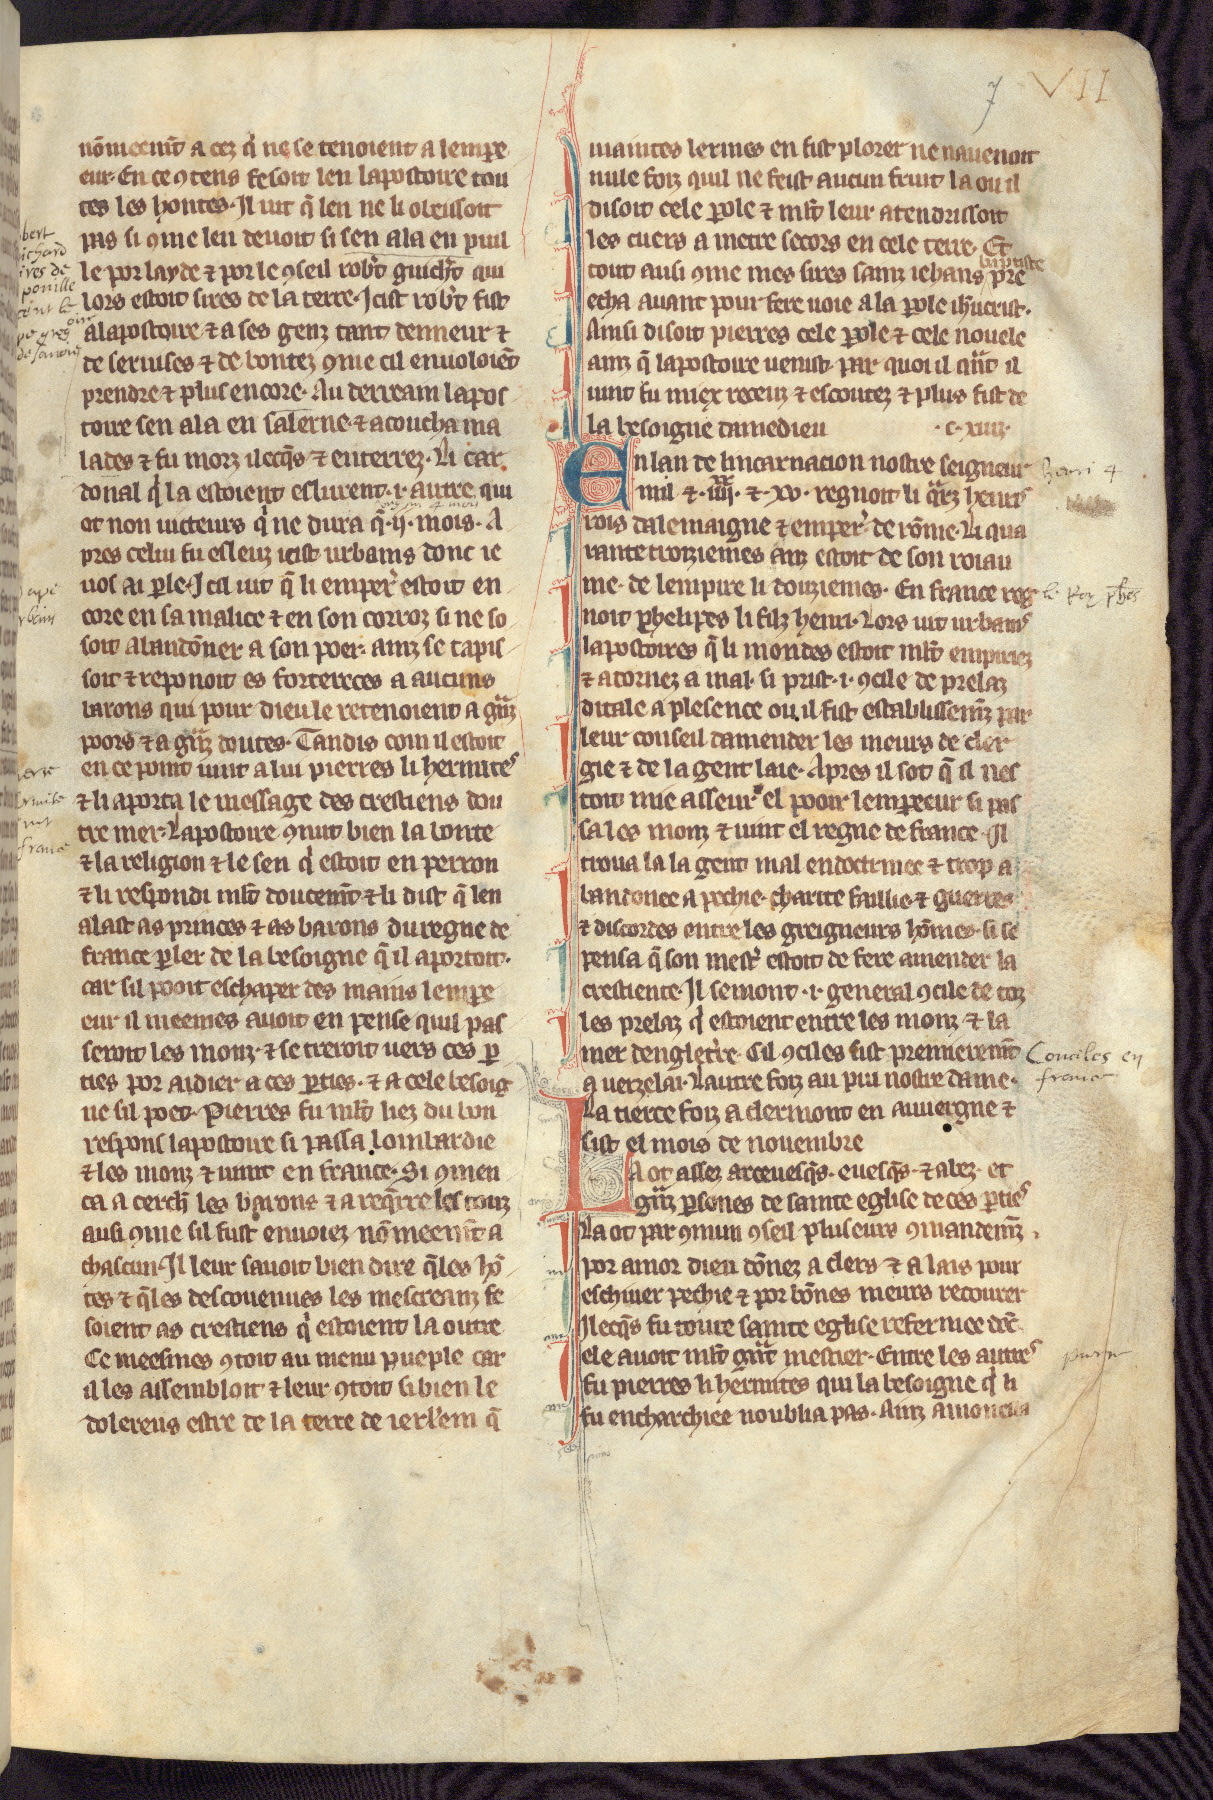 7 VII
nōmeemt̄ a cez q̇ ne se tenoient a lempe
eur. En ce ꝯtens fesoit len lapostoire tou
tes les hontes. Il uit q̄ len ne li obeissoit
pas si ꝯme len deuoit si sen ala en puil
le por layde ⁊ por le ꝯseil rob̄t guich̄t qui
lors estoit sires de la terre. Icist rob̄t fist
alapostoire ⁊ a ses genz tant denneur ⁊
de seruises ⁊ de bontez ꝯme cil en uoloiēt
prendre ⁊ plus encore. Au derream lapos
toire sen ala en salerne. ⁊ acoucha ma
lades ⁊ fu morz ilecq̄s ⁊ enterrez. Li car
donal q̇ la estoient eslurent .i. autre qui
ot non uicteurs q̇ ne dura q̄ .ij. mois. A
pres celui fu esleuz icist urbains donc ie
uos ai ꝑle. Icil uit q̄ li emper̄ estoit en
core en sa malice ⁊ en son corroz si ne so
soit abandōner a son poer. ainz se tapis
soit ⁊ reponoit es fortereces a aucuns
barons qui pour dieu le retenoient a gᷓnz
poors ⁊ a gᷓnz doutes. Tandis com il estoit
en ce point uint a lui pierres li hermites
⁊ li aporta le message des crestiens dou
tre mer. Lapostoire ꝯnut bien la bonte
⁊ la religion ⁊ le sen q̇ estoit en perron
⁊ li respondi ml̄t doucemt̄ ⁊ li dist q̄ len
alast as princes ⁊ as barons du regne de
france ꝑler de la besoigne q̄ il aportoit.
car sil pooit eschaper des mains lempe
eur il meemes auoit en pense quil pas
seroit les monz. ⁊ se treroit uers ces ꝑ
ties por aidier a ces ꝑties. ⁊ a cele besoig
ne sil poet. Pierres fu ml̄t liez du bon
respons lapostoire si passa lombardie
⁊ les monz ⁊ uint en france. Si ꝯmen
ca a cerch̄ les barons ⁊ a req̄rre les touz
ausi ꝯme sil fust enuoiez nōmeemt̄ a
chascun. Il leur sauoit bien dire q̄les hō
tes ⁊ q̄les descouenues les mescreanz fe
soient as crestiens q̇ estoient la outre
Ce meesmes ꝯtoit au menu pueple car
il les assembloit ⁊ leur ꝯtoit si bien le
dolereus estre de la terre de ierl̄em q̄
maintes lermes en fist plorer ne nauenoit
nule foiz quil ne feist aucun fruit la ou il
disoit cele ꝑole ⁊ ml̄t leur atendrissoit
les cuers a metre secors en cele terre. Et
baptiste
tout ausi ꝯme mes sires sainz iehans pre
echa auant pour fere uoie a la ꝑole ih̄ucrist.
Ainsi disoit pierres cele ꝑole ⁊ cele nouele
ainz q̄ lapostoire uenist. par quoi il qn̄t il
uint fu miex receuz ⁊ escoutez ⁊ plus fist de
la besoigne damedieu .c. xiiij.
En lan de lincarnacion nostre seigneur
mil ⁊ .iiijxx. ⁊ .xv. regnoit li qᷓrz henris
rois dalemaigne ⁊ emper̄ de rōme. Li qua
rante troiziemes anz estoit de son roiau
me. de lempire li douziemes. En france reg
noit phelipes li filz henri. Lors uit urbains
lapostoires q̄ li mondes estoit ml̄t empiriez
⁊ atornez a mal. si prist .i. ꝯcile de prelaz
ditale a plesence ou il fist establissemz̄ par
leur conseil damender les meurs de cler
gie ⁊ de la gent laie. Apres il sot q̄ il nes
toit mie asseur el pooir lempereeur si pas
sa les monz ⁊ uint el regne de france. Il
troua la la gent mal endoctrinee ⁊ trop a
bandonee a pechie. charite faillie ⁊ guerres
⁊ discordes entre les greigneurs hōmes. si se
pensa q̄ son mest̄ estoit de fere amender la
crestiente. Il semont .i. general ꝯcile de toz
les prelaz q̇ estoient entre les monz ⁊ la
mer dengleter̄re. Cil ꝯciles fist premieremt̄
a uerzelai. Lautre foiz au pui nostre dame.
La tierce foiz a clermont en auuergne ⁊
fist el mois de nouembre
La ot assez arceuesq̄s. euesq̄s. ⁊ abez. et
gᷓnz ꝑsones de sainte eglise de ces ꝑties
La ot par ꝯmun ꝯseil pluseurs ꝯmandemz̄
por amor dieu dōnez a clers ⁊ a lais pour
eschiuer pechie ⁊ por bōnes meurs recourer
Ilecq̄s fu toute sainte eglise refermee dōt
ele auoit ml̄t gᷓnt mestier. Entre les autres
fu pierres li hermites qui la besoigne q̇ li
fu encharchiee noublia pas. Ainz amonesta
henri 4
le Roy
Conciles en
france